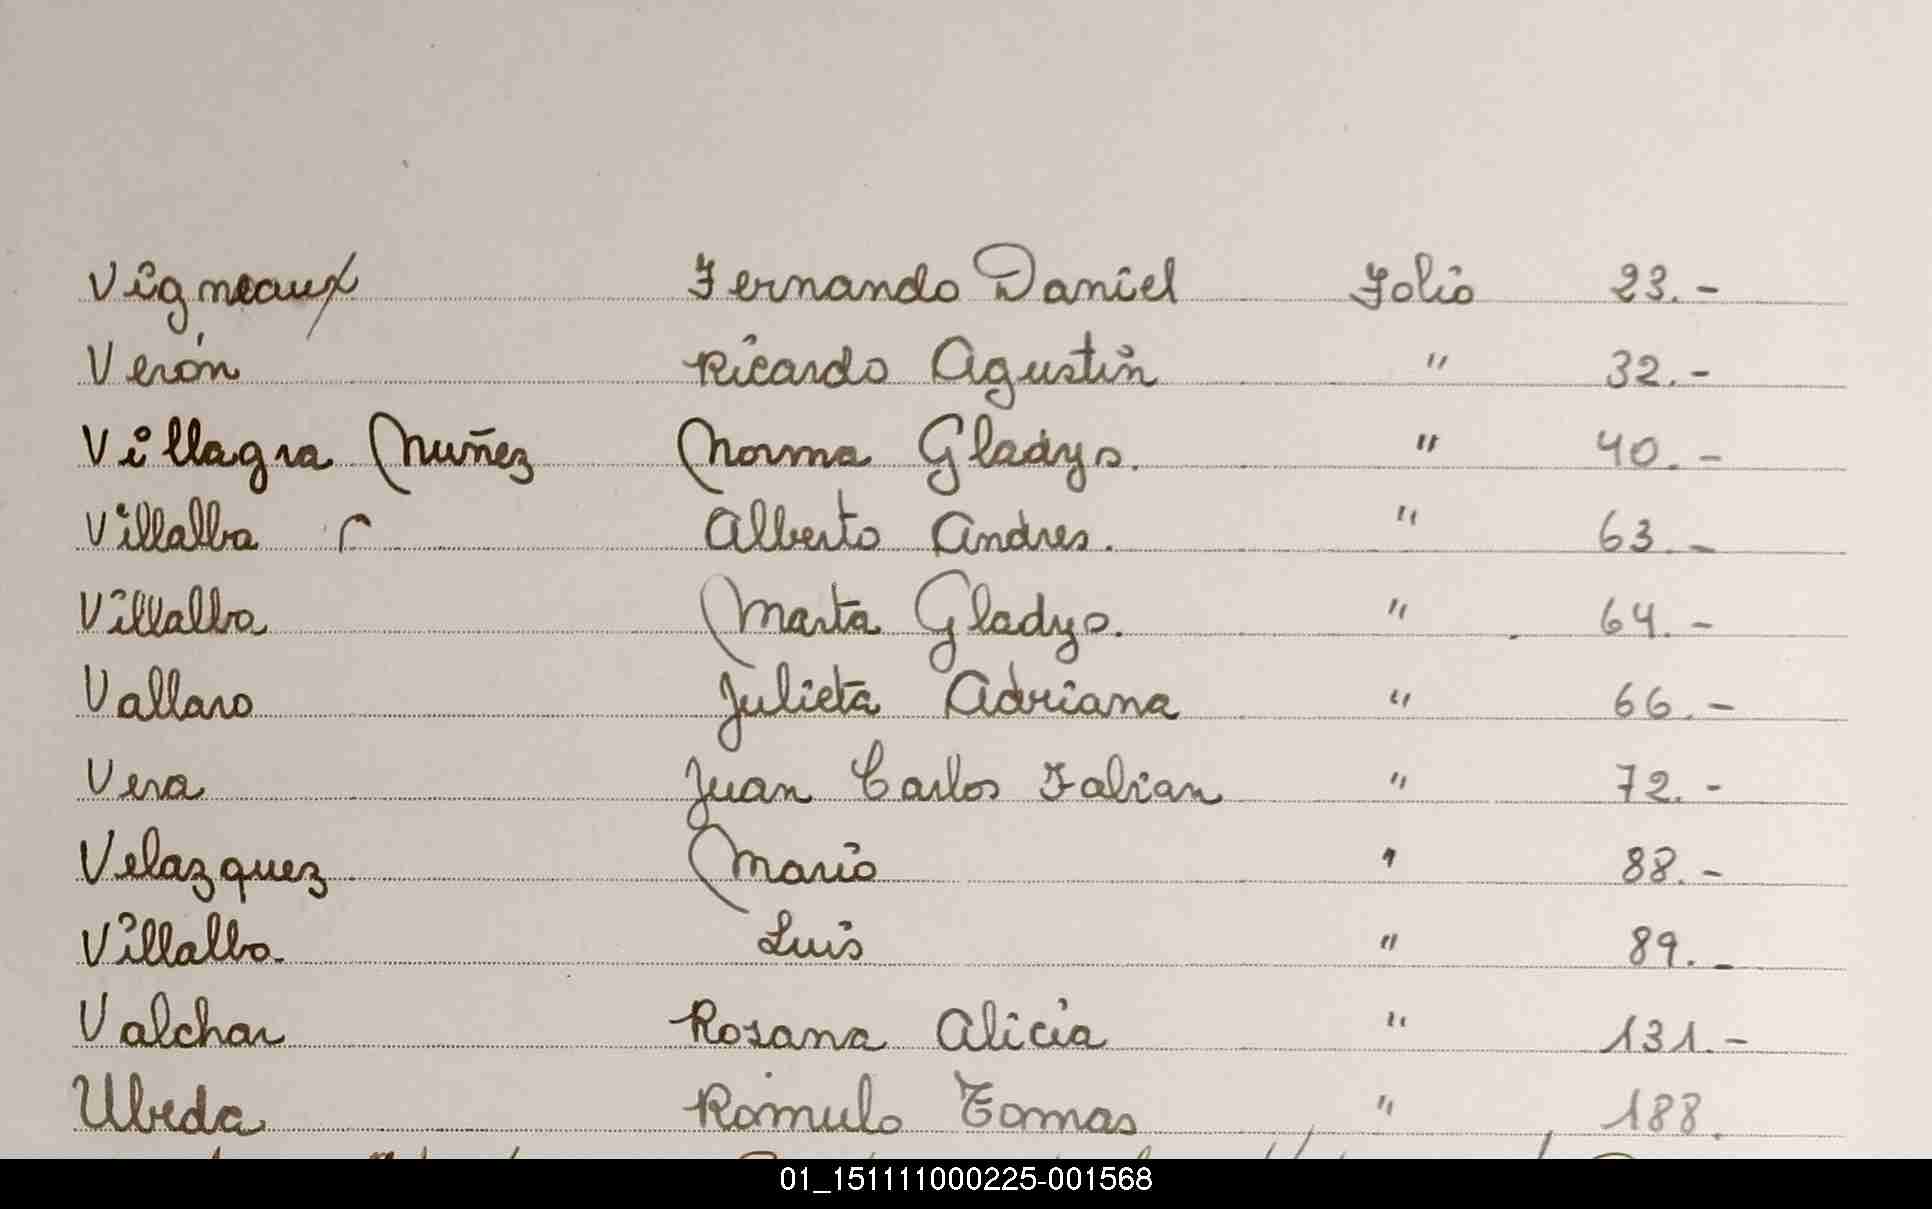 Vigneaux Fernando Daniel Folio 23.-
Verón Ricardo Agustin " 32.-
Villagra Nuñez Norma Gladys. " 40.-
Villalba Alberto Andres. " 63.-
Villalba Marta Gladys. " 64.-
Vallaro Julieta Adriana " 66.-
Vera Juan Carlos Fabian " 72.-
Velazquez Mario " 88.-
Villalba. Luis " 89.-
Valchar Rosana Alicia " 131.-
Ubeda Rómulo Tomas " 188.
01_151111000225-001568